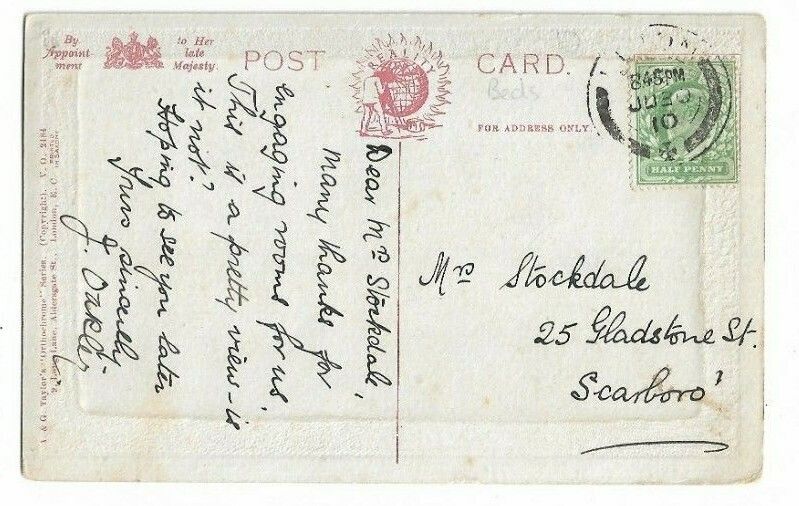 By
Appoint
ment
to Her
late
Majesty.
POST CARD.
REALITY
FOR ADDRESS ONLY
Beds
8 45 PM
JU 20
10
HALF PENNY
A. & G. Taylor's "Orthochrome" Series. (Copyright). V. O. 2484
London, E. C.
Dear Mrs Stockdale
Many thanks for
engaging rooms for us'
This is a pretty view - is
it not?
Hoping to see you later
Yours sincerely
J.
Mrs Stockdale
25 Gladstone St.
Scarboro'